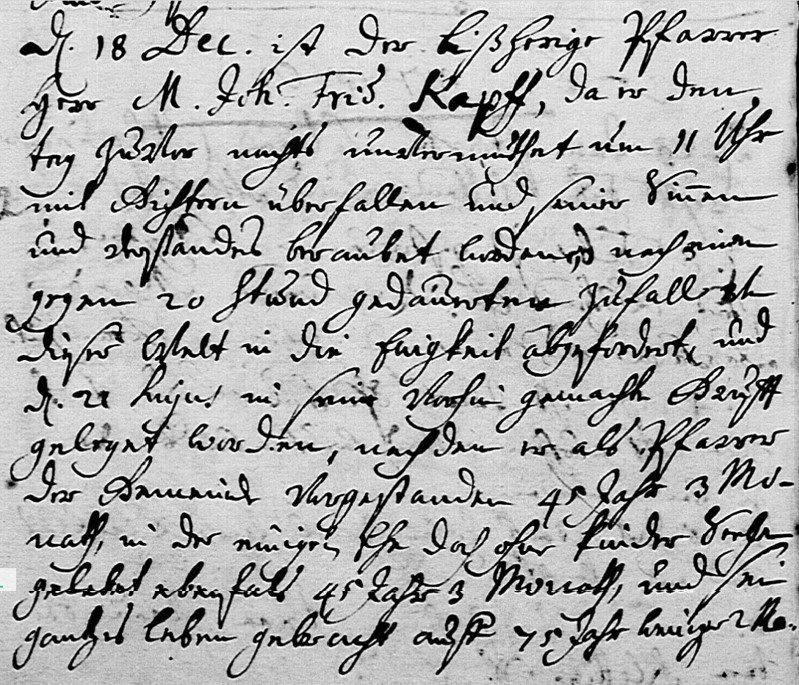 d. 18 Dec. ist der bißherige Pfarrer
Herr M. Joh. Frid. Kapff, da er den
tag zuvor nachts unvermuthet um 11 Uhr
mit Gichtern überfallen und seiner Sinnen
und Verstandes beraubet worden, nach einem
gegen 20 Stund gedauerten Zufall
dieser Welt in die Ewigkeit abgefordert, und
d. 21 hujus in seine vorhin gemachte Grufft
geleget worden, nachdem er als Pfarrer
der Gemeinde vorgestanden 45 Jahr 3 Mo-
nath, in der einigen Ehe doch ohne Kinder Seegen
gelebet ebenfals 45 Jahr 3 Monath, und sein
gantzes Leben gebracht auff 75 Jahr weniger 2 Mo.